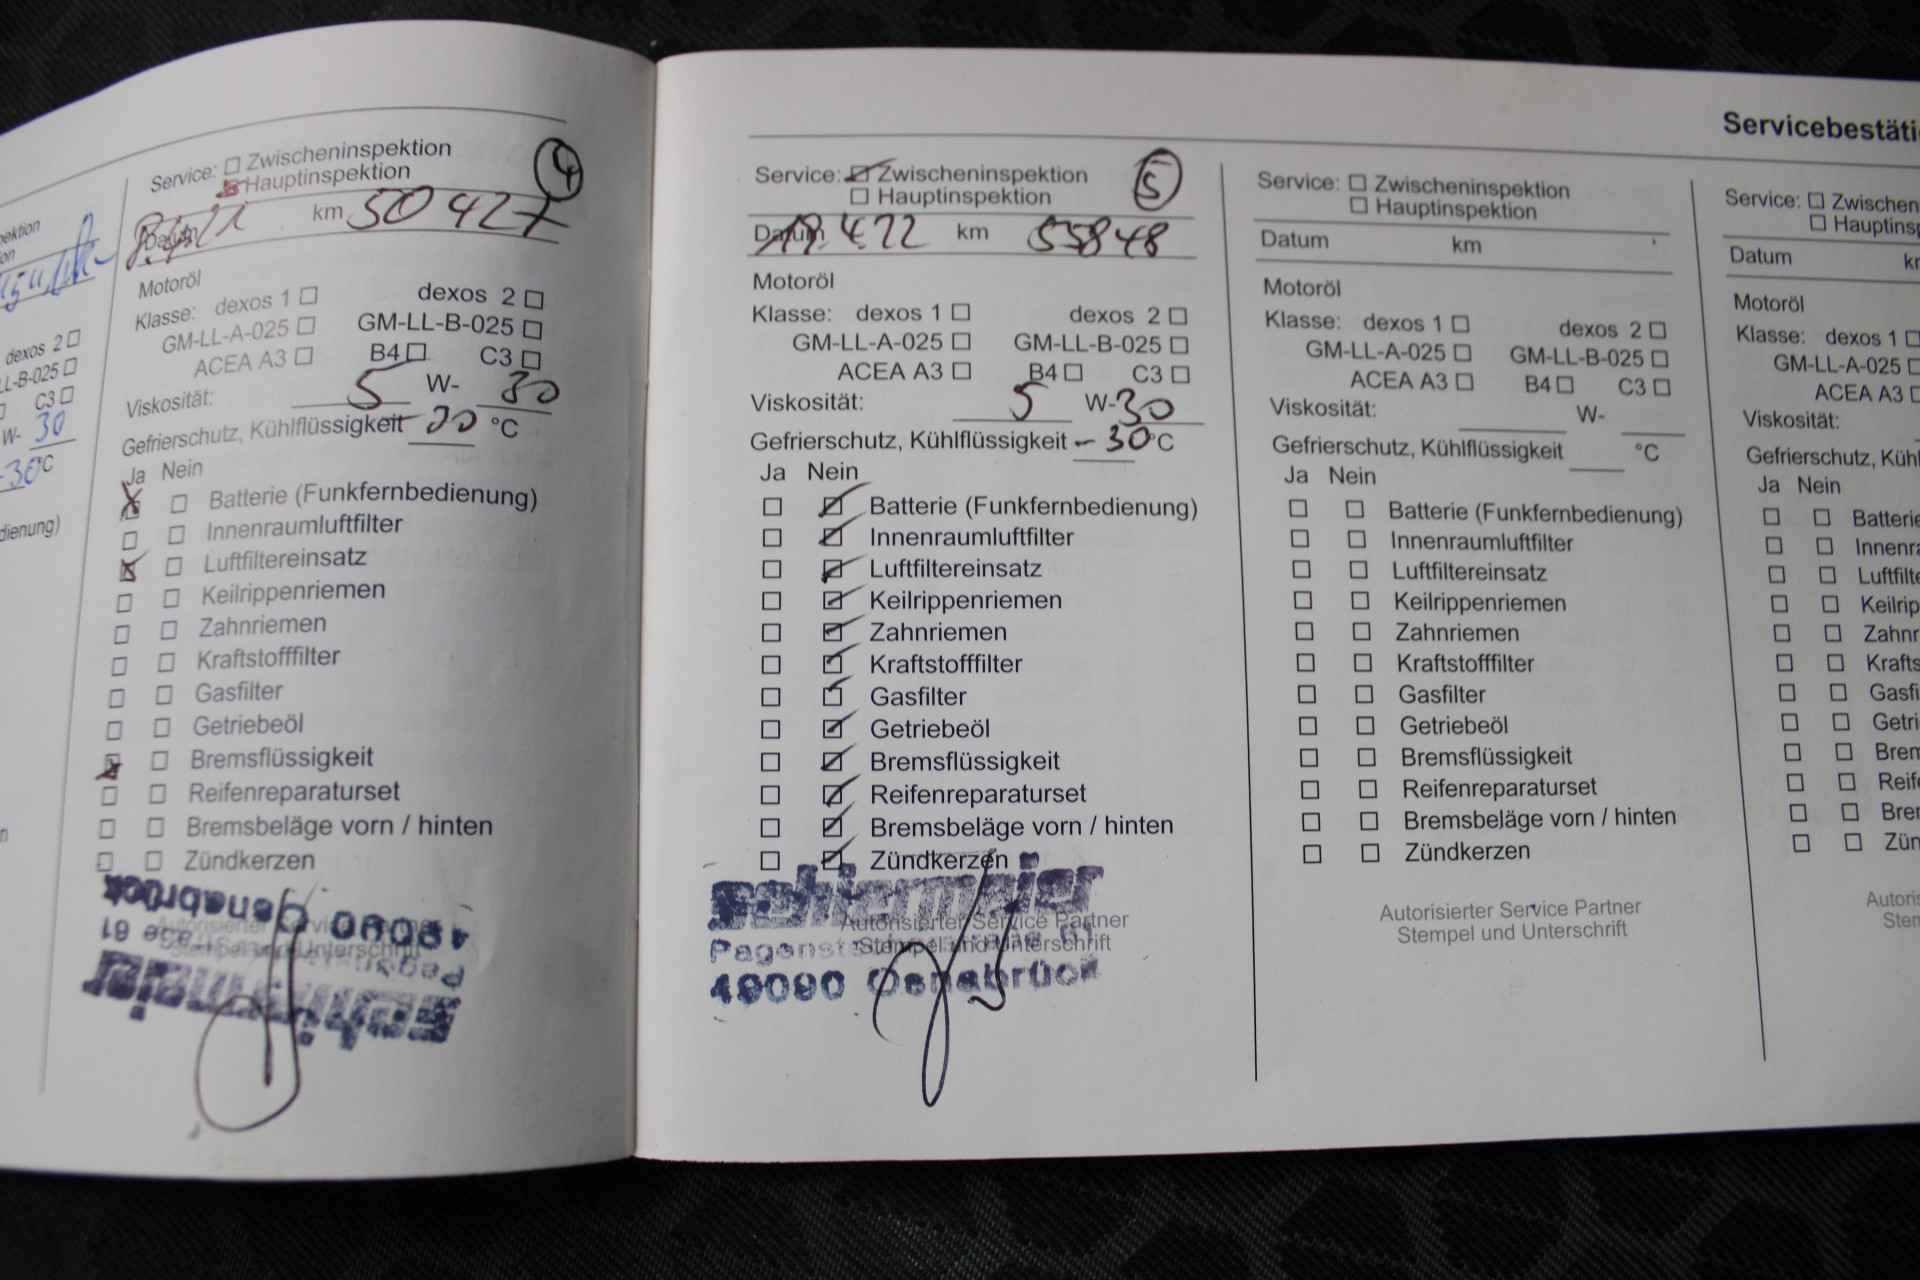 Servicebestäti
ektion
on
dexos 2
LL-B-025
C3
W- 30
-30°C
dienung)
Service: Zwischeninspektion
Hauptinspektion
4
Datum km 50 427
Motoröl
Klasse: dexos 1 dexos 2
GM-LL-A-025 GM-LL-B-025
ACEA A3 B4 C3
Viskosität: 5 W- 30
Gefrierschutz, Kühlflüssigkeit °C
Ja Nein
Batterie (Funkfernbedienung)
Innenraumluftfilter
Luftfiltereinsatz
Keilrippenriemen
Zahnriemen
Kraftstofffilter
Gasfilter
Getriebeöl
Bremsflüssigkeit
Reifenreparaturset
Bremsbeläge vorn / hinten
Zündkerzen
49090 Osnabrück
Stempel und Unterschrift
schiermeier
Service: Zwischeninspektion
Hauptinspektion
5
Datum 19.4.22 km 55848
Motoröl
Klasse: dexos 1 dexos 2
GM-LL-A-025 GM-LL-B-025
ACEA A3 B4 C3
Viskosität: 5 W-30
Gefrierschutz, Kühlflüssigkeit -30°C
Ja Nein
Batterie (Funkfernbedienung)
Innenraumluftfilter
Luftfiltereinsatz
Keilrippenriemen
Zahnriemen
Kraftstofffilter
Gasfilter
Getriebeöl
Bremsflüssigkeit
Reifenreparaturset
Bremsbeläge vorn / hinten
Zündkerzen
schiermeier
Autorisierter Service Partner
Stempel und Unterschrift
49090 Osnabrück
Service: Zwischeninspektion
Hauptinspektion
Datum km
Motoröl
Klasse: dexos 1 dexos 2
GM-LL-A-025 GM-LL-B-025
ACEA A3 B4 C3
Viskosität: W-
Gefrierschutz, Kühlflüssigkeit °C
Ja Nein
Batterie (Funkfernbedienung)
Innenraumluftfilter
Luftfiltereinsatz
Keilrippenriemen
Zahnriemen
Kraftstofffilter
Gasfilter
Getriebeöl
Bremsflüssigkeit
Reifenreparaturset
Bremsbeläge vorn / hinten
Zündkerzen
Autorisierter Service Partner
Stempel und Unterschrift
Service: Zwischen
Hauptinsp
Datum k
Motoröl
Klasse: dexos 1
GM-LL-A-025
ACEA A3
Viskosität:
Gefrierschutz, Kühl
Ja Nein
Batterie
Innenra
Luftfilte
Keilrip
Zahnr
Krafts
Gasfi
Getri
Brem
Reife
Brer
Zün
Autoris
Stem